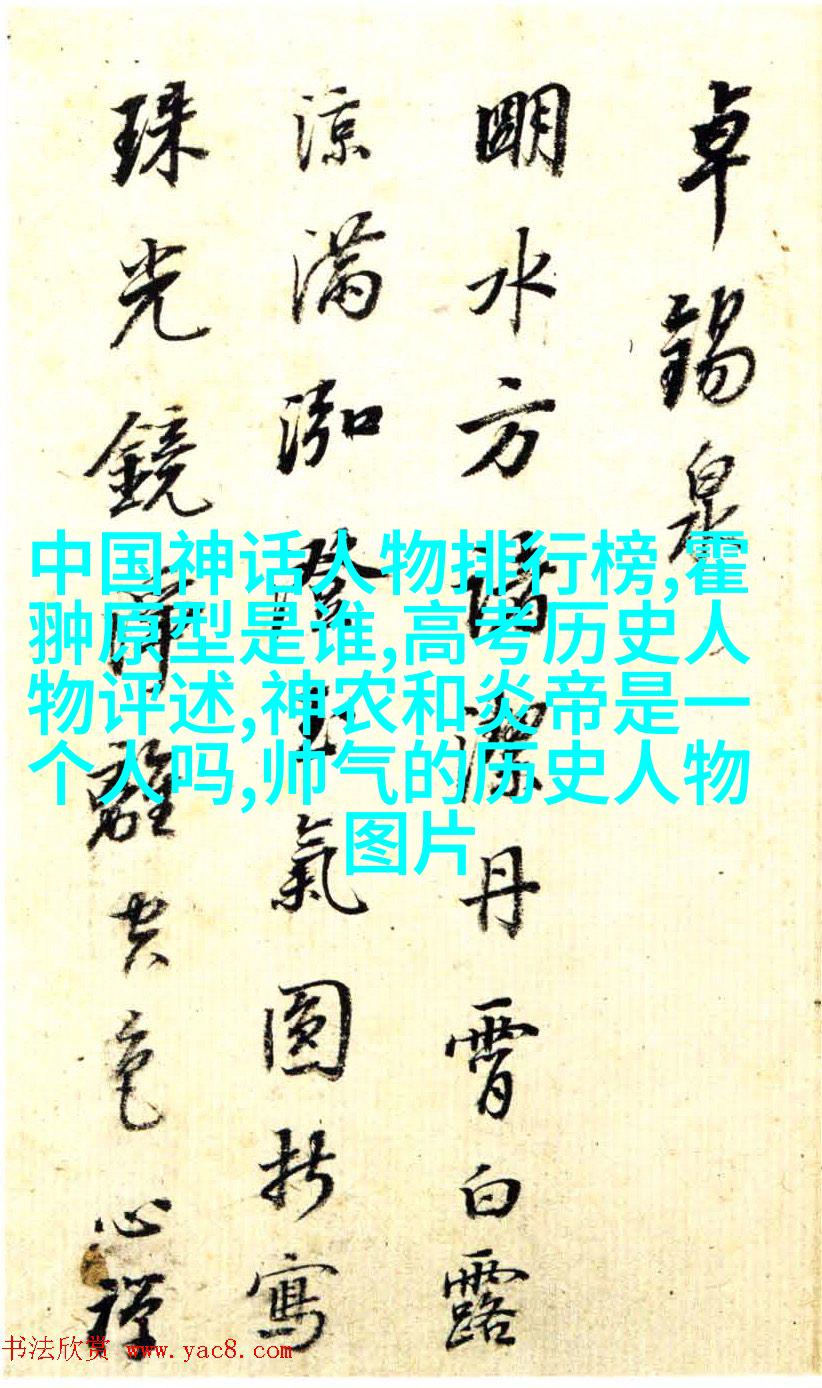 卓錫泉
明水方諸潔丹霄白露
涼滿泓澄玉氣圓折寫
珠光鏡離空色心禪
中国神话人物排行榜,霍
翀原型是谁,高考历史人
物评述,神农和炎帝是一
个人吗,帅气的历史人物
图片
书法欣赏 www.yac8.com